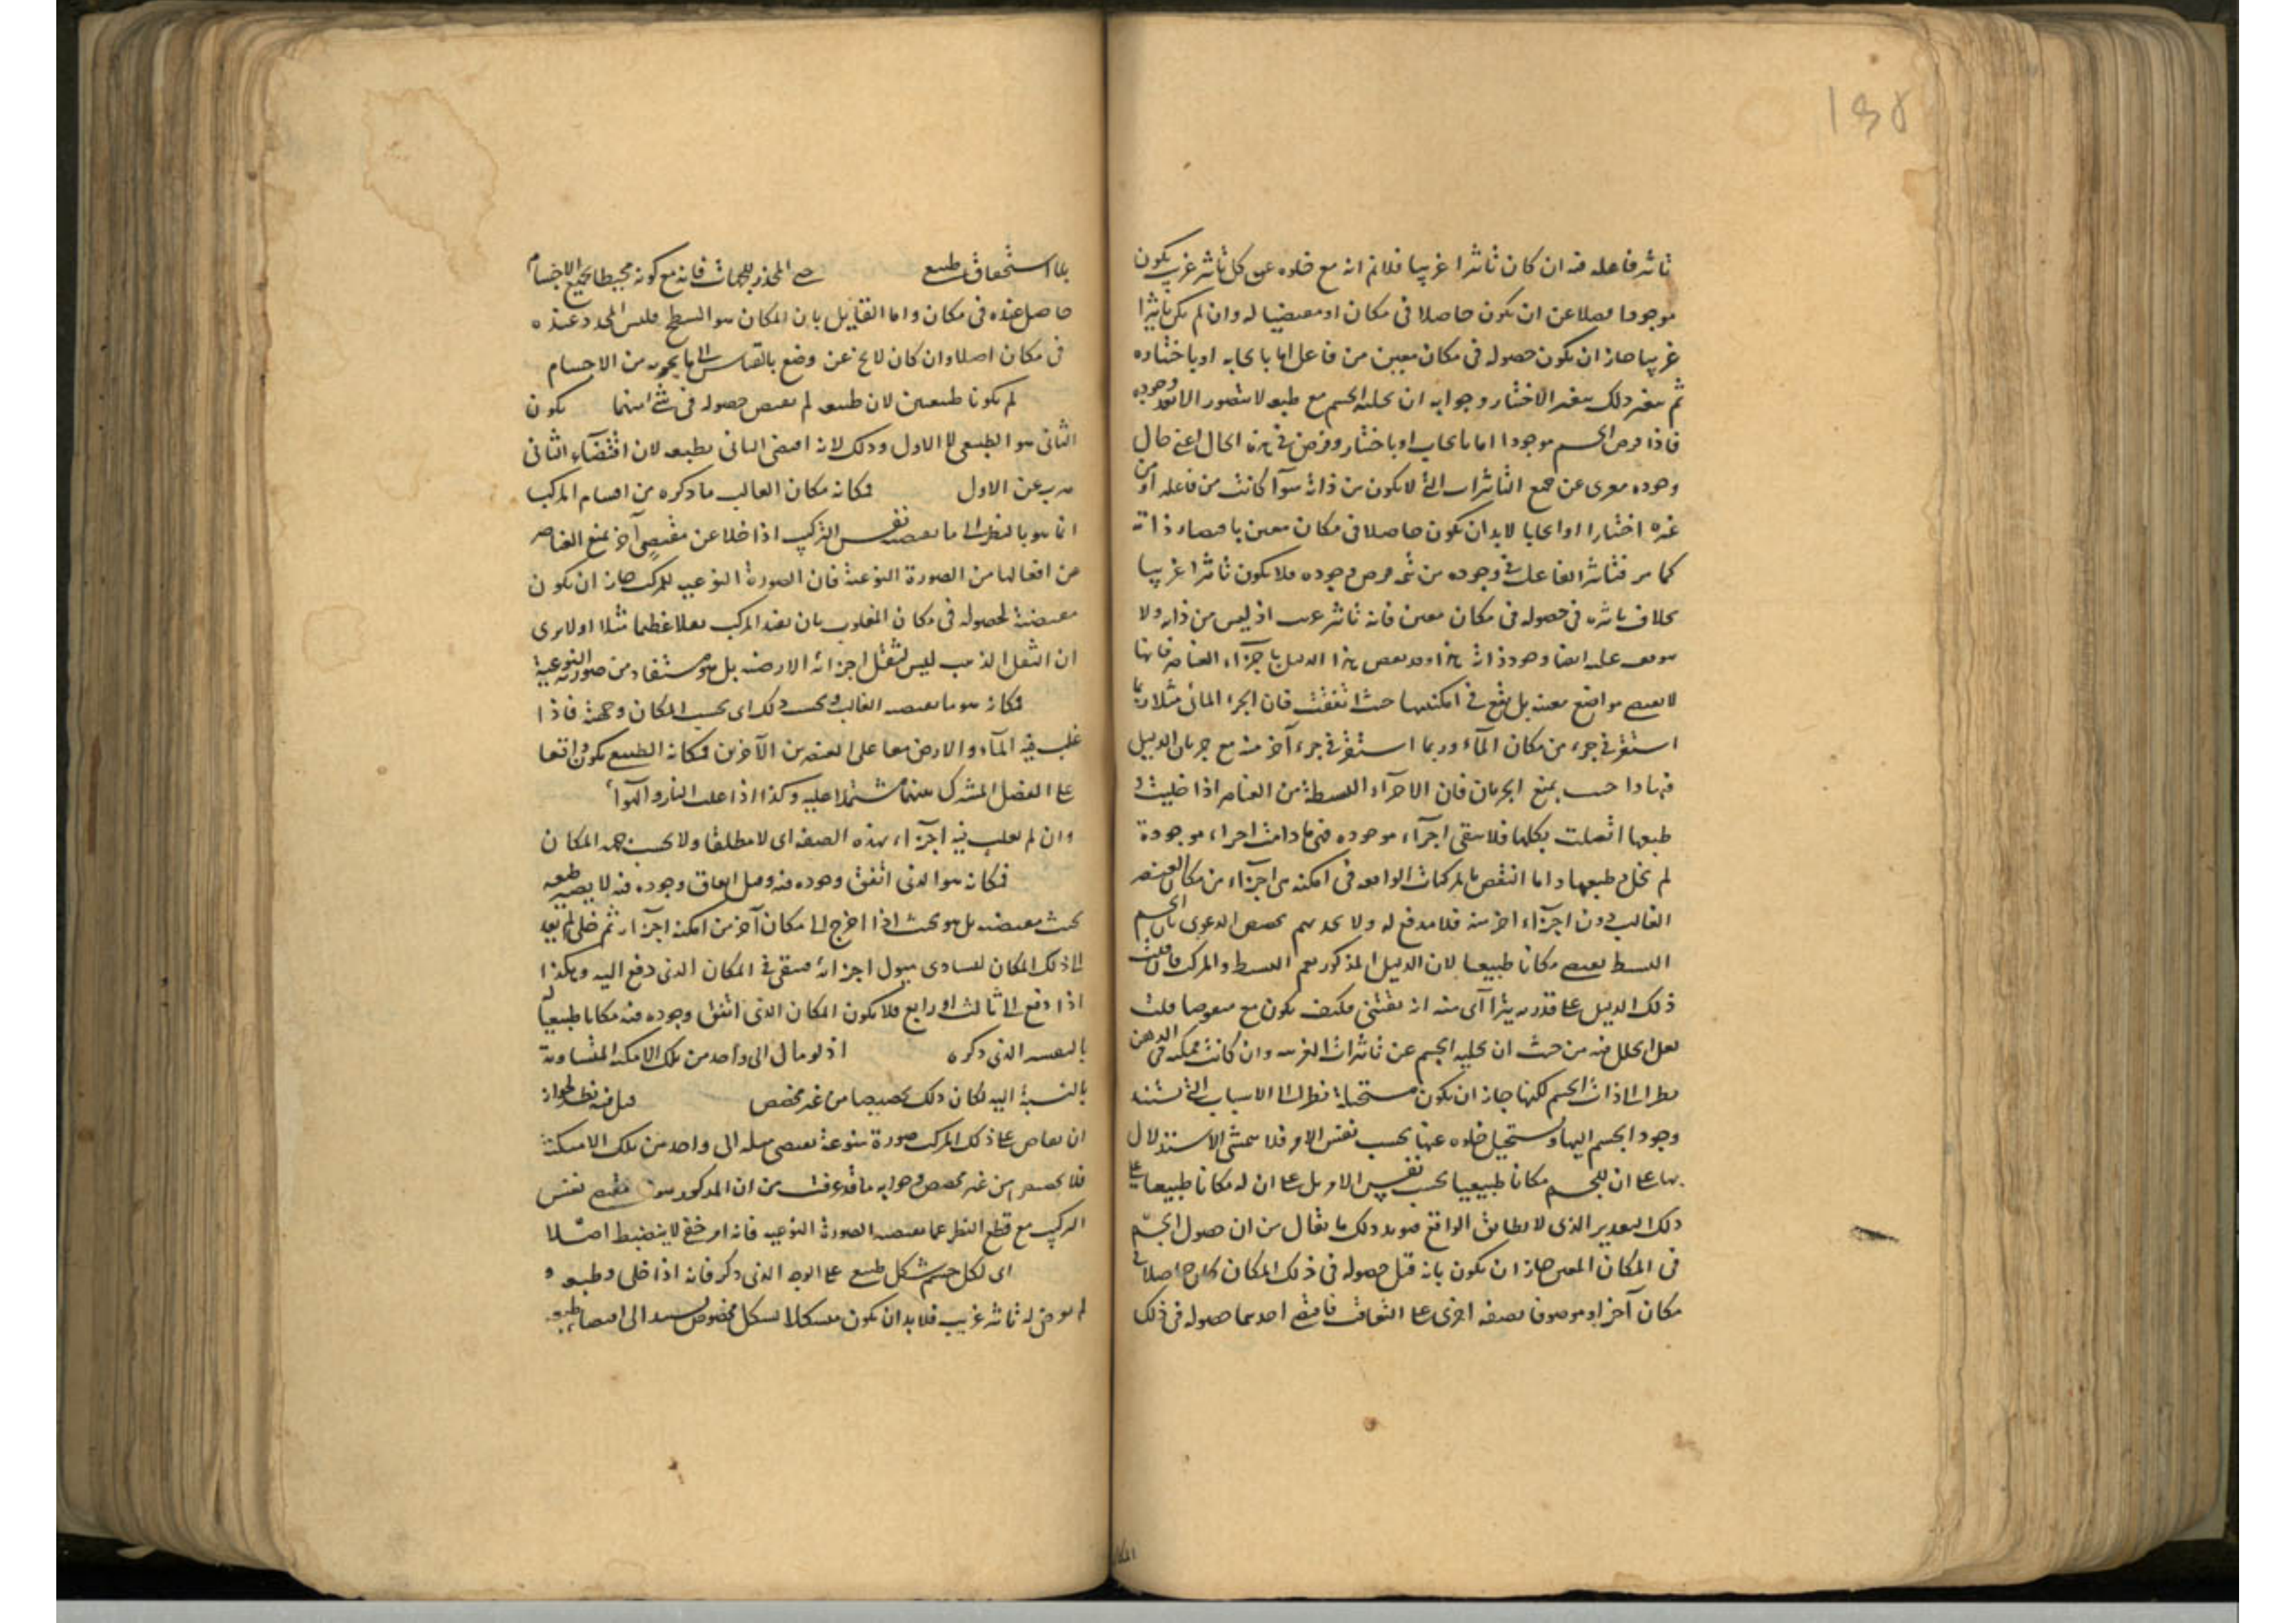 ١٩٥
تاثير فاعله فيه ان كان تاثيرا غريبا فلا نم انه مع خلوه عن كل تاثير غريب يكون
موجودا فضلا عن ان يكون حاصلا فى مكان او مقتضيا له وان لم يكن تاثيرا
غريبا جاز ان يكون حصوله فى مكان معين من فاعل اما بايجابه او باختياره
ثم يتغير ذلك بتغير الاختيار وجوابه ان تخلية الجسم مع طبعه لا يتصور الا بعد وجوده
فاذا فرض الجسم موجودا اما بايجاب او باختيار وفرض فى هذه الحال اعنى حال
وجوده معرى عن جميع التاثيرات التى لا يكون من ذاته سوآ كانت من فاعله او من
غيره اختيارا او ايجابا لابد ان يكون حاصلا فى مكان معين باقتضاء ذاته
كما مر فتاثير الفاعل فى وجوده من تتمه فرض وجوده فلا يكون تاثيرا غريبا
بخلاف تاثيره فى حصوله فى مكان معين فانه تاثير غريب اذ ليس من ذاته ولا
يتوقف عليه ايضا وجود ذاته هذا وقد ينقض هذا الدليل باجزآء العناصر فانها
لا يقتضى مواضع معينه بل يقع فى امكنتها حيث اتفقت فان الجزء المائى مثلا ربما
استقر فى جزء من مكان المآء وربما استقر فى جزء آخر منه مع جريان الدليل
فيها واجيب بمنع الجريان فان الاجزآء البسيطة من العناصر اذا خليت و
طبعها اتصلت بكلها فلا يبقى اجزآء موجوده فى ما دامت اجزاء موجودة
لم تخل وطبعها واما النقض بالمركبات الواقعه فى امكنه هى اجزآء من مكان العنصر
الغالب دون اجزآء اخر منه فلا مدفع له ولا يجديهم تخصيص الدعوى بان الجسم
البسيط يقتضى مكانا طبيعيا لان الدليل المذكور يعم البسيط والمركب فان قلت
ذلك الدليل على تقدير يترا آى منه انه يقتنى فكيف يكون مع منقوضا قلت
لعل الخلل فيه من حيث ان تخلية الجسم عن تاثيرات الغريبه وان كانت ممكنه فى الذهن
نظرا الى ذات الجسم لكنها جاز ان يكون مستحيلة نظرا الى الاسباب التى يستند
وجود الجسم اليها ويستحيل خلوه عنها بحسب نفس الامر فلا يتمشى الاستدلال
بها على ان للجسم مكانا طبيعيا بحسب نفس الامر بل على ان له مكانا طبيعيا على
ذلك التقدير الذى لا يطابق الواقع ذلك ما يقال من ان حصول الجسم
فى المكان المعين جاز ان يكون بانه قبل حصوله فى ذلك المكان كان حاصلا فى
مكان آخر او موصوفا بصفه اخرى على التعاقب فاقتضى احديهما حصوله فى ذلك
المكان
بلا استحقاق طبيع حتى المحدد للجهات فانه مع كونه محيطا بجميع الاجسام
حاصل عنده فى مكان واما القايل بان المكان هو السطح فليس المحدد عنده
فى مكان اصلا وان كان لا يخ عن وضع بالقياس الى ما يحويه من الاجسام
لم يكونا طبيعيين لان طبيعه لم يقتض حصوله فى شئ منهما يكون
الثانى هو الطبيعى لا الاول وذلك لانه اقتضى الثانى بطبعه لان اقتضآء الثانى
هرب عن الاول فكانه مكان الغالب ما ذكره من اقسام المركب
انما هو بالنظر الى ما يقتضيه نفس التركيب اذا خلا عن مقتضى آخر يمنع العناصر
عن افعالها من الصورة النوعية فان الصورة النوعيه للمركب جاز ان يكون
مقتضية لحصوله فى مكان المغلوب بان يفيد المركب ثقلا عظيما مثلا اولا يرى
ان الثقل الذهب ليس لثقل اجزائه الارضيه بل هو مستفاد من صورته النوعية
فكانه هو ما يقتضيه الغالب بحسب ذلك اى بحسب المكان وجهته فاذا
غلب فيه المآء والارض معا على العنصرين الآخرين فمكانه الطبيع يكون واقعا
على الفصل المشترك بينهما مشتملا عليه وكذا اذا غلب النار والهوآء
وان لم يغلب فيه اجزآء بهذه الصفه اى لا مطلقا ولا بحسب جهه المكان
فكانه هو الذى اتفق وجوده فيه وقبل اتفاق وجوده فيه لا يقتضيه طبعه
بحيث يقتضيه بل هو بحيث اذا اخرج الى مكان آخر من امكنه اجزآئه ثم خلى لم يعد
الى ذلك المكان لتساوى ميول اجزائه فيبقى فى المكان الذى دفع اليه وهكذا
اذا دفع الى ثالث او رابع فلا يكون المكان الذى اتفق وجوده فيه مكانا طبيعيا
بالتفسير الذى ذكره اذ لو مال الى واحد من تلك الامكنه المتساوية
بالنسبة اليه لكان ذلك تخصيصا من غير مخصص قيل فيه نظر لجواز
ان يفاض على ذلك المركب صورة نوعية يقتضى ميله الى واحد من تلك الامكنة
فلا تخصيص من غير مخصص وجوابه ما قد عرفت من ان المذكور هو مقتضى نفس
التركيب مع قطع النظر عما يقتضيه الصورة النوعيه فانه امر خفى لا ينضبط اصلا
اى لكل جسم شكل طبيع على الوجه الذى ذكر فانه اذا خلى وطبعه و
لم يعرض له تاثير غريب فلابد ان يكون متشكلا بشكل مخصوص مستند الى اقتضا طبعه